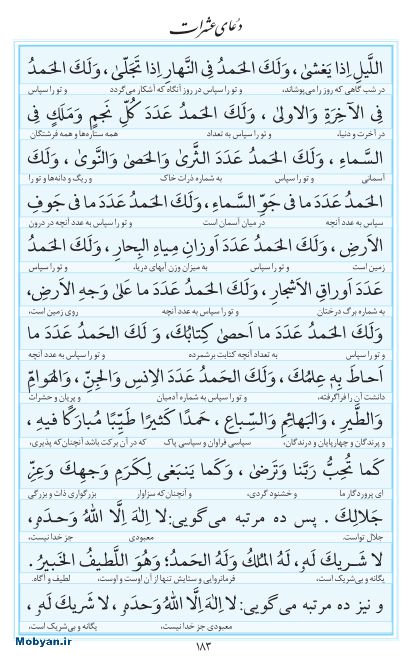 دعای عشرات
اللَّيلِ اِذا يَغشىٰ ، وَلَكَ الحَمدُ فِى النَّهارِ اِذا تَجَلّىٰ ، وَلَكَ الحَمدُ
در شب گاهی که روز را می‌پوشاند، و تو را سپاس در روز آنگاه که آشکار می‌گردد و تو را سپاس
فِى الآخِرَةِ وَالاولىٰ ، وَلَكَ الحَمدُ عَدَدَ كُلِّ نَجمٍ وَمَلَكٍ فِى
در آخرت و دنیا، و تو را سپاس به تعداد همه ستاره‌ها و همه فرشتگان
السَّماءِ ، وَلَكَ الحَمدُ عَدَدَ الثَّرىٰ وَالحَصىٰ وَالنَّوىٰ ، وَلَكَ
آسمانی و تو را سپاس به شماره ذرات خاک و ریگ و دانه‌ها و تو را
الحَمدُ عَدَدَ ما فى جَوِّ السَّماءِ ، وَلَكَ الحَمدُ عَدَدَ ما فى جَوفِ
سپاس به عدد آنچه در میان آسمان است و تو را سپاس به عدد آنچه در درون
الاَرضِ ، وَلَكَ الحَمدُ عَدَدَ اَوزانِ مِياهِ البِحارِ ، وَلَكَ الحَمدُ
زمین است و تو را سپاس به میزان وزن آبهای دریا، و تو را سپاس
عَدَدَ اَوراقِ الاَشجارِ ، وَلَكَ الحَمدُ عَدَدَ ما عَلىٰ وَجهِ الاَرضِ،
به شماره برگ درختان و تو را سپاس به عدد آنچه روی زمین است،
وَلَكَ الحَمدُ عَدَدَ ما اَحصىٰ كِتابُكَ، وَ لَكَ الحَمدُ عَدَدَ ما
و تو را سپاس به تعداد آنچه کتابت برشمرده و تو را سپاس به عدد آنچه
اَحاطَ بِهِ عِلمُكَ ، وَلَكَ الحَمدُ عَدَدَ الاِنسِ وَالجِنِّ ، وَالهَوامِّ
دانشت آن را فراگرفته، و تو را سپاس به شماره آدمیان و پریان و حشرات
وَالطَّيرِ ، وَالبَهائِمِ وَالسِّباعِ ، حَمدًا كَثيرًا طَيِّبًا مُبارَكًا فيهِ ،
و پرندگان و چهارپایان و درندگان، سپاسی فراوان و سپاسی پاک که در آن برکت باشد آنچنان‌که پذیری،
كَما تُحِبُّ رَبَّنا وَتَرضىٰ ، وَكَما يَنبَغى لِكَرَمِ وَجهِكَ وَعِزِّ
ای پروردگار ما و خشنود گردی، و آنچنان که سزاوار بزرگواری ذات و بزرگی
جَلالِكَ . پس ده مرتبه می‌گویی: لا اِلٰهَ اِلَّا اللهُ وَحدَهُ ،
جلال تواست. معبودی جز خدا نیست،
لا شَريكَ لَهُ، لَهُ المُلكُ وَلَهُ الحَمدُ؛ وَهُوَ اللَّطيفُ الخَبيرُ .
یگانه و بی‌شریک است، فرمانروایی و ستایش تنها از آن اوست و اوست، لطیف و آگاه.
و نیز ده مرتبه می‌گویی: لا اِلٰهَ اِلَّا اللهُ وَحدَهُ ، لا شَريكَ لَهُ ،
معبودی جز خدا نیست، یگانه و بی‌شریک است،
۱۸۳
Mobyan.ir